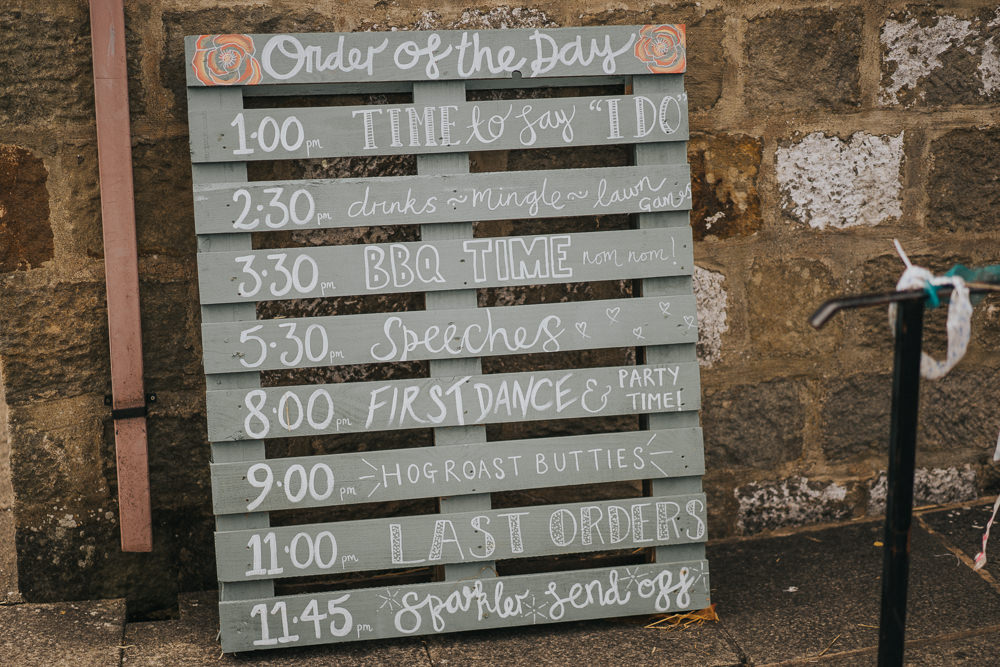 Order of the Day
1.00pm TIME to say "I DO"
2.30pm drinks ~ Mingle ~ lawn GAMES
3.30pm BBQ TIME nom nom!
5.30pm Speeches
8.00pm FIRST DANCE & PARTY TIME!
9.00pm HOG ROAST BUTTIES
11.00pm LAST ORDERS
11.45pm Sparkler send off